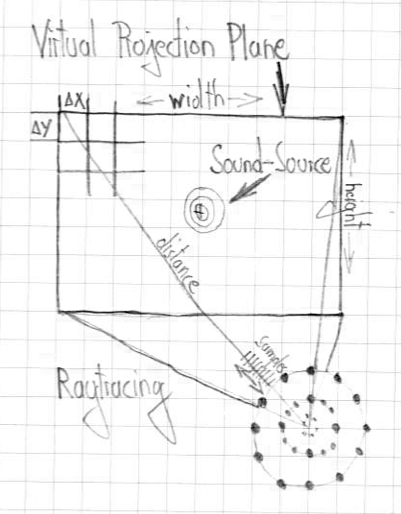 Virtual Projection Plane
ΔX
width
ΔY
Sound-Source
height
distance
Samples
Raytracing